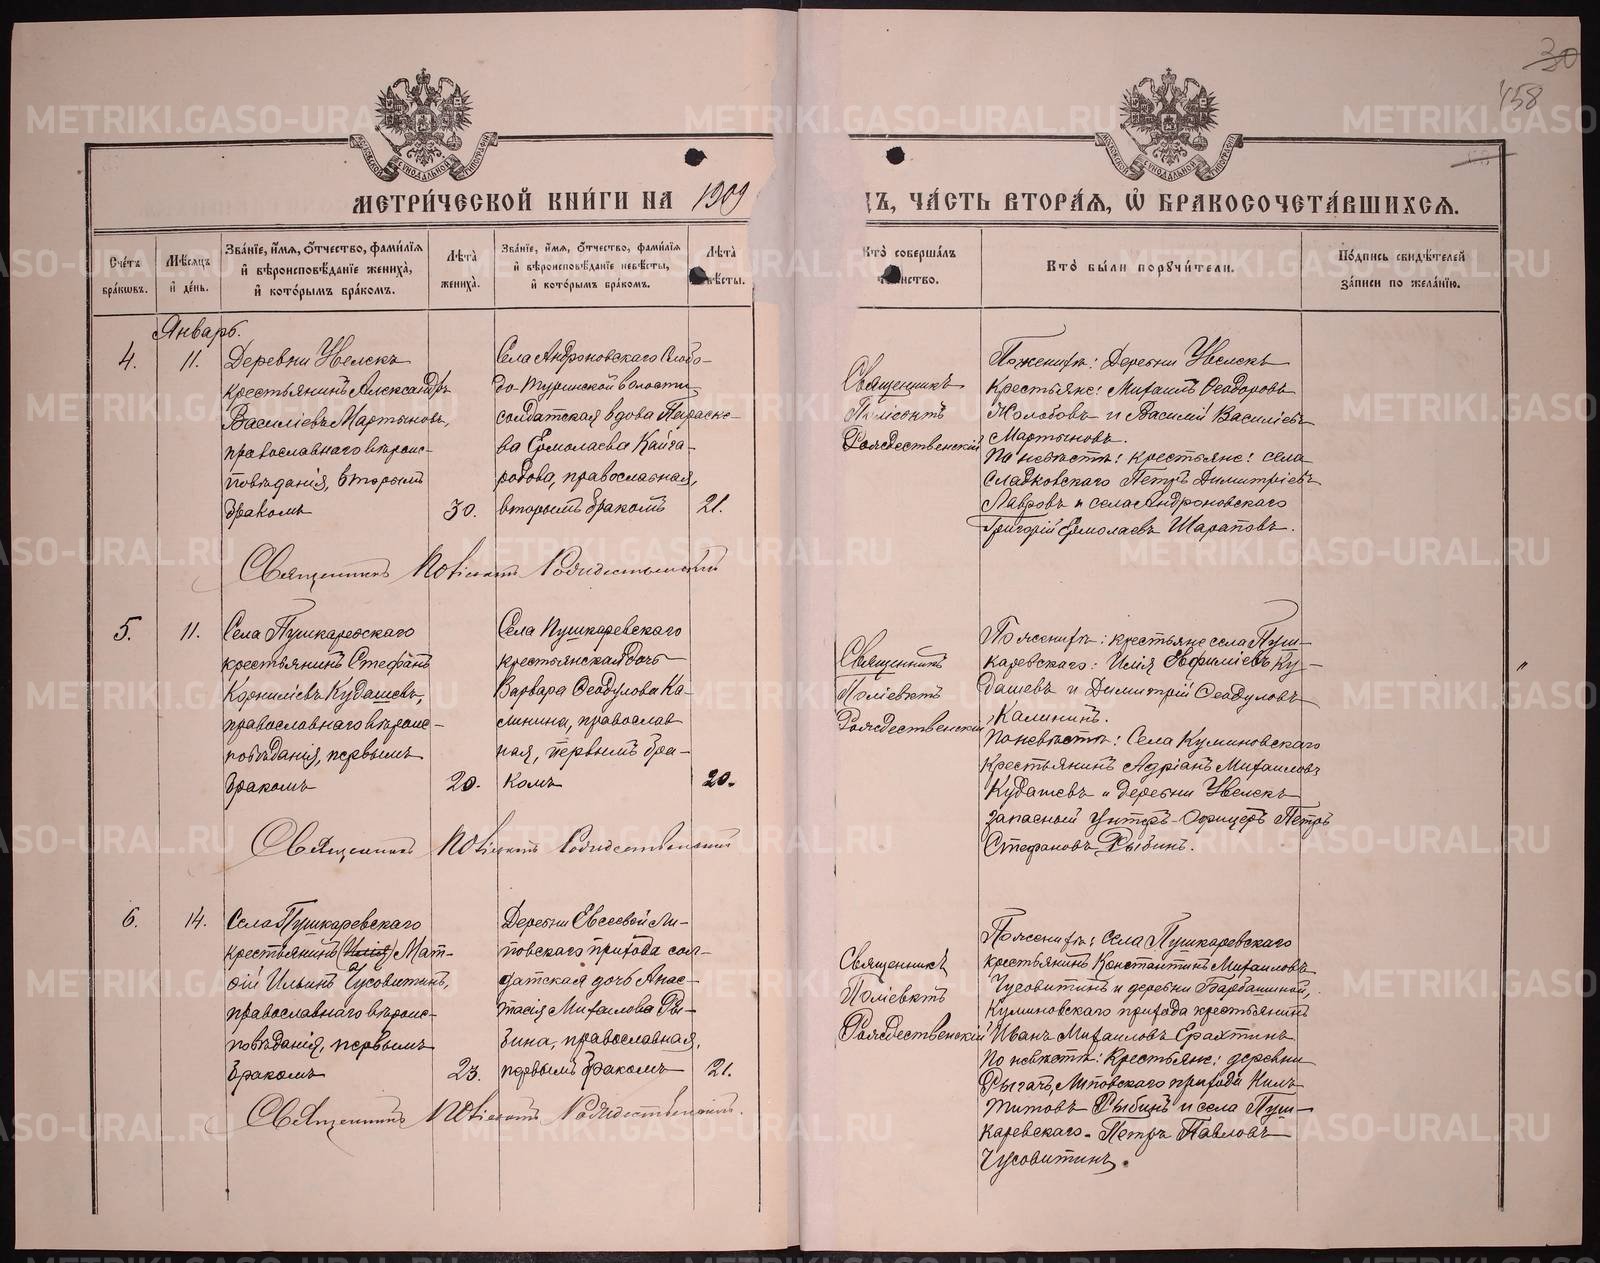 30
458
МЕТРИ́ЧЕСКОЙ КНИ́ГИ НА 1909
ДЪ, ЧА́СТЬ ВТОРА́Я, Ѡ БРАКОСОЧЕТА́ВШИХСЯ.
Сче́тъ бра́кѡвъ.
Мѣ́сяцъ и де́нь.
Зва́нїе, и́мя, о́тчество, фами́лїя и вѣроисповѣ́данїе жениха̀, и кото́рымъ бра́комъ.
Лѣта̀ жениха̀.
Зва́нїе, и́мя, о́тчество, фами́лїя и вѣроисповѣ́данїе невѣ́сты, и кото́рымъ бра́комъ.
Лѣта̀ невѣ́сты.
Кто̀ соверша́лъ таинство.
Кто̀ бы́ли порꙋчи́тели.
По́дпись свидѣ́телей за́писи по жела́нїю.
Январь.
4.
11.
Деревни Увелскъ
крестьянинъ Александръ
Василіевъ Мартыновъ,
православнаго вѣроис-
повѣданія, вторымъ
бракомъ
30.
Села Андроновскаго Слобо-
до-Туринской волости
солдатская вдова Параске-
ва Ермолаева Кайга-
родова, православная,
вторымъ бракомъ
21.
Священникъ
Поліевктъ
Рождественскій
По женихѣ: Деревни Увелскъ
крестьяне: Михаилъ Ѳеодоровъ
Колобовъ и Василій Василіевъ
Мартыновъ.
По невѣстѣ: крестьяне: села
Сладковскаго Петръ Димитріевъ
Лавровъ и села Андроновскаго
Григорій Ермолаевъ Шараповъ.
Священникъ Поліевктъ Рождественскій
5.
11.
Села Пушкаревскаго
крестьянинъ Стефанъ
Корниліевъ Кудашевъ,
православнаго вѣроис-
повѣданія, первымъ
бракомъ
20.
Села Пушкаревскаго
крестьянская дочь
Варвара Ѳеодулова Ка-
линина, православ
ная, первымъ бра-
комъ
20.
Священникъ
Поліевктъ
Рождественскій
По женихѣ: крестьяне села Пуш-
каревскаго: Илія Евфиміевъ Ку-
дашевъ и Димитрій Ѳеодуловъ
Калининъ.
По невѣстѣ: Села Куминовскаго
крестьянинъ Адріанъ Михаиловъ
Кудашевъ и деревни Увелскъ
запасный унтеръ-офицеръ Петръ
Стефановъ Рыбинъ.
Священникъ Поліевктъ Рождественскій
6.
14.
Села Пушкаревскаго
крестьянинъ Мат-
ѳій Ильинъ Чусовитинъ,
православнаго вѣроис-
повѣданія, первымъ
бракомъ
23.
Деревни Евсеевой Ли-
повскаго прихода сол-
датская дочь Анас-
тасія Михаилова Ры-
бина, православная,
первымъ бракомъ
21.
Священникъ
Поліевктъ
Рождественскій
По женихѣ: села Пушкаревскаго
крестьянинъ Константинъ Михаиловъ
Чусовитинъ и деревни Барбашиной,
Куминовскаго прихода крестьянинъ
Иванъ Михаиловъ Ерахтинъ
По невѣстѣ: Крестьяне: деревни
Рычагъ, Липовскаго прихода Килъ
Титовъ Рыбинъ и села Пуш-
каревскаго - Петръ Павловъ
Чусовитинъ.
Священникъ Поліевктъ Рождественскій.
METRIKI.GASO-URAL.RU